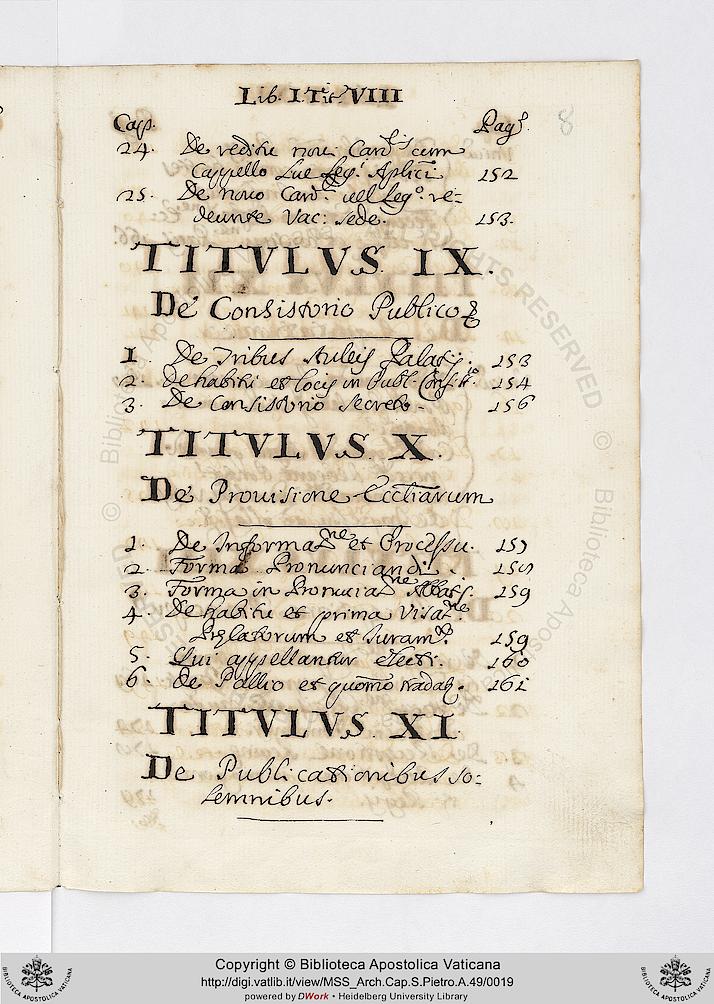 Lib. I. Tit. VIII
8
Cap. Pag.
24. De reditu novi Card.lis cum
Cappello sue Leg.i Aplici 152
25. De novo Card. vel Leg.o re=
deunte Vac: sede. 153.
TITVLVS. IX.
De Consistorio Publico
1. De Tribus Auleis Palatij. 153
2. De habitu et locis in Publ. Consist.o 154
3. De Consistorio secreto. 156
TITVLVS X.
De Provisione Eccliarum
1. De Informat.ne et Processu. 157
2. Forma Pronunciandi.
3. Forma in Pronuciat.ne Abbatis. 159
4. De habitu et prima Visat.ne
Prelatorum et Juram.to 159
5. Qui appellantur electi. 160
6. De Pallio et quomo tradat. 161
TITVLVS XI.
De Publicationibus so=
lemnibus.
© Biblioteca Apostolica Vaticana
RIGHTS RESERVED
Copyright © Biblioteca Apostolica Vaticana
http://digi.vatlib.it/view/MSS_Arch.Cap.S.Pietro.A.49/0019
powered by DWork • Heidelberg University Library